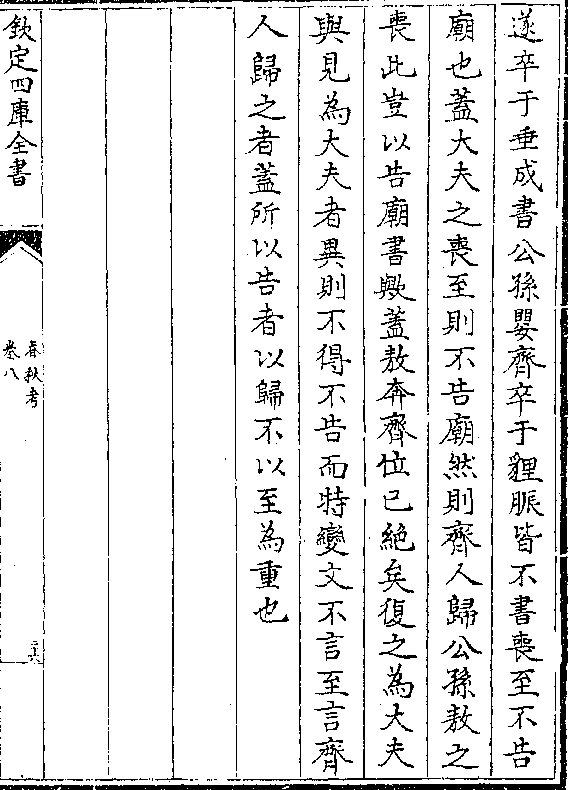 遂卒于垂成書公孫嬰齊卒于貍脤皆不書喪至不告
廟也蓋大夫之喪至則不告廟然則齊人歸公孫敖之
喪此豈以告廟書歟蓋敖奔齊位已絶矣復之為大夫
與見為大夫者異則不得不告而特變文不言至言齊
人歸之者蓋所以告者以歸不以至為重也
欽定四庫全書
春秋考
卷八
二六